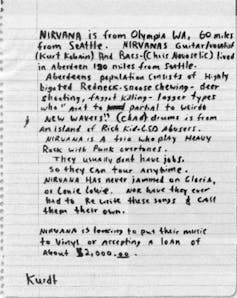 NIRVANA is from Olympia WA, 60 miles
from Seattle. NIRVANAS Guitar/vocalist
(Kurt Kobain) And Bass-(Chris Novoselic) lived
in Aberdeen 150 miles from Seattle.
Aberdeens population consists of Highly
bigoted Redneck-snoose chewing- deer
shooting, faggot killing- logger types
who "Aint to partial to weirdo
New WAVERS" (chad) drums is from
an island of Rich kid-LSD Abusers.
NIRVANA is A trio who play HEAVY
Rock with Punk overtones.
They usually dont have jobs.
So they can tour Anytime.
NIRVANA HAS never jammed on Gloria,
or Louie Louie. Nor have they ever
had to Re write these songs & CALL
them their own.
NIRVANA is looking to put their music
to Vinyl or accepting a loan of
About $2,000.00.
Kurdt